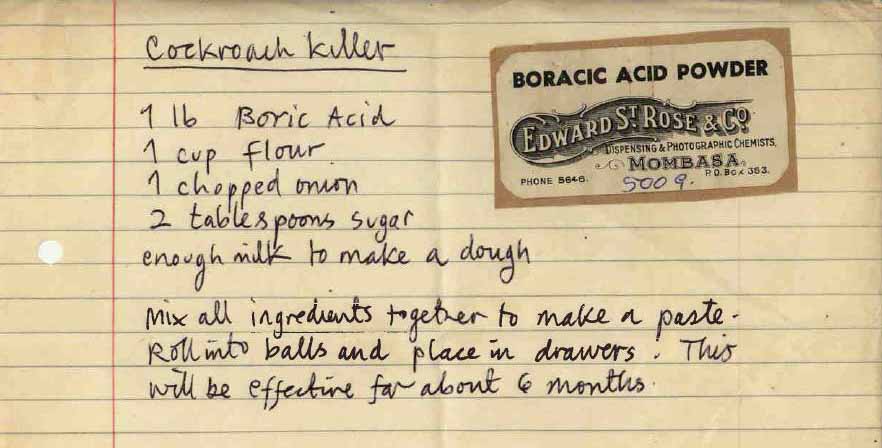 Cockroach killer
1 lb Boric Acid
1 cup flour
1 chopped onion
2 tablespoons sugar
enough milk to make a dough
Mix all ingredients together to make a paste.
Roll into balls and place in drawers. This
will be effective for about 6 months.
BORACIC ACID POWDER
EDWARD ST. ROSE & CO.
DISPENSING & PHOTOGRAPHIC CHEMISTS,
MOMBASA
PHONE 5646. P.O. Box 353.
500 g.